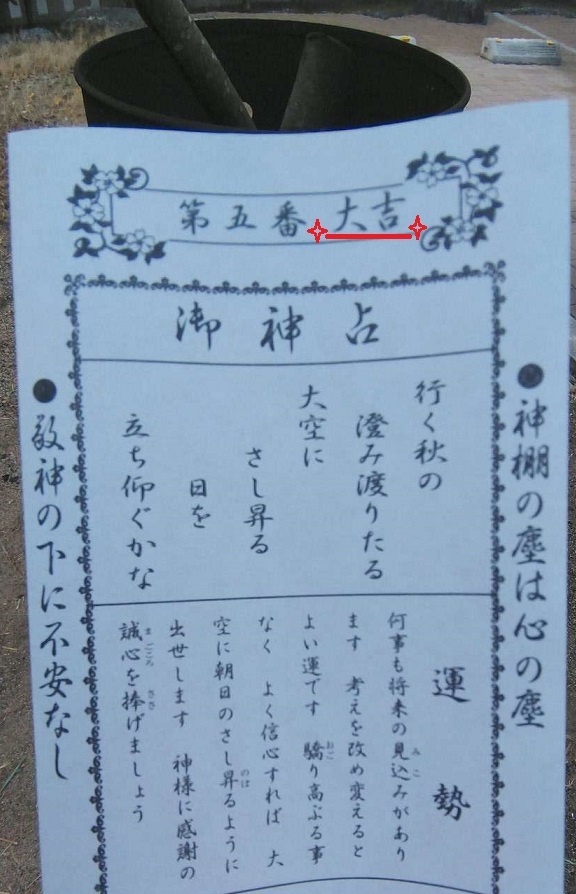 第五番 大吉
御神占
●神棚の塵は心の塵
行く秋の
澄み渡りたる
大空に
さし昇る
日を
立ち仰ぐかな
運勢
何事も将来の見込みがあり
ます 考えを改め変えると
よい運です 驕り高ぶる事
なく よく信心すれば 大
空に朝日のさし昇るように
出世します 神様に感謝の
誠心を捧げましょう
●敬神の下に不安なし